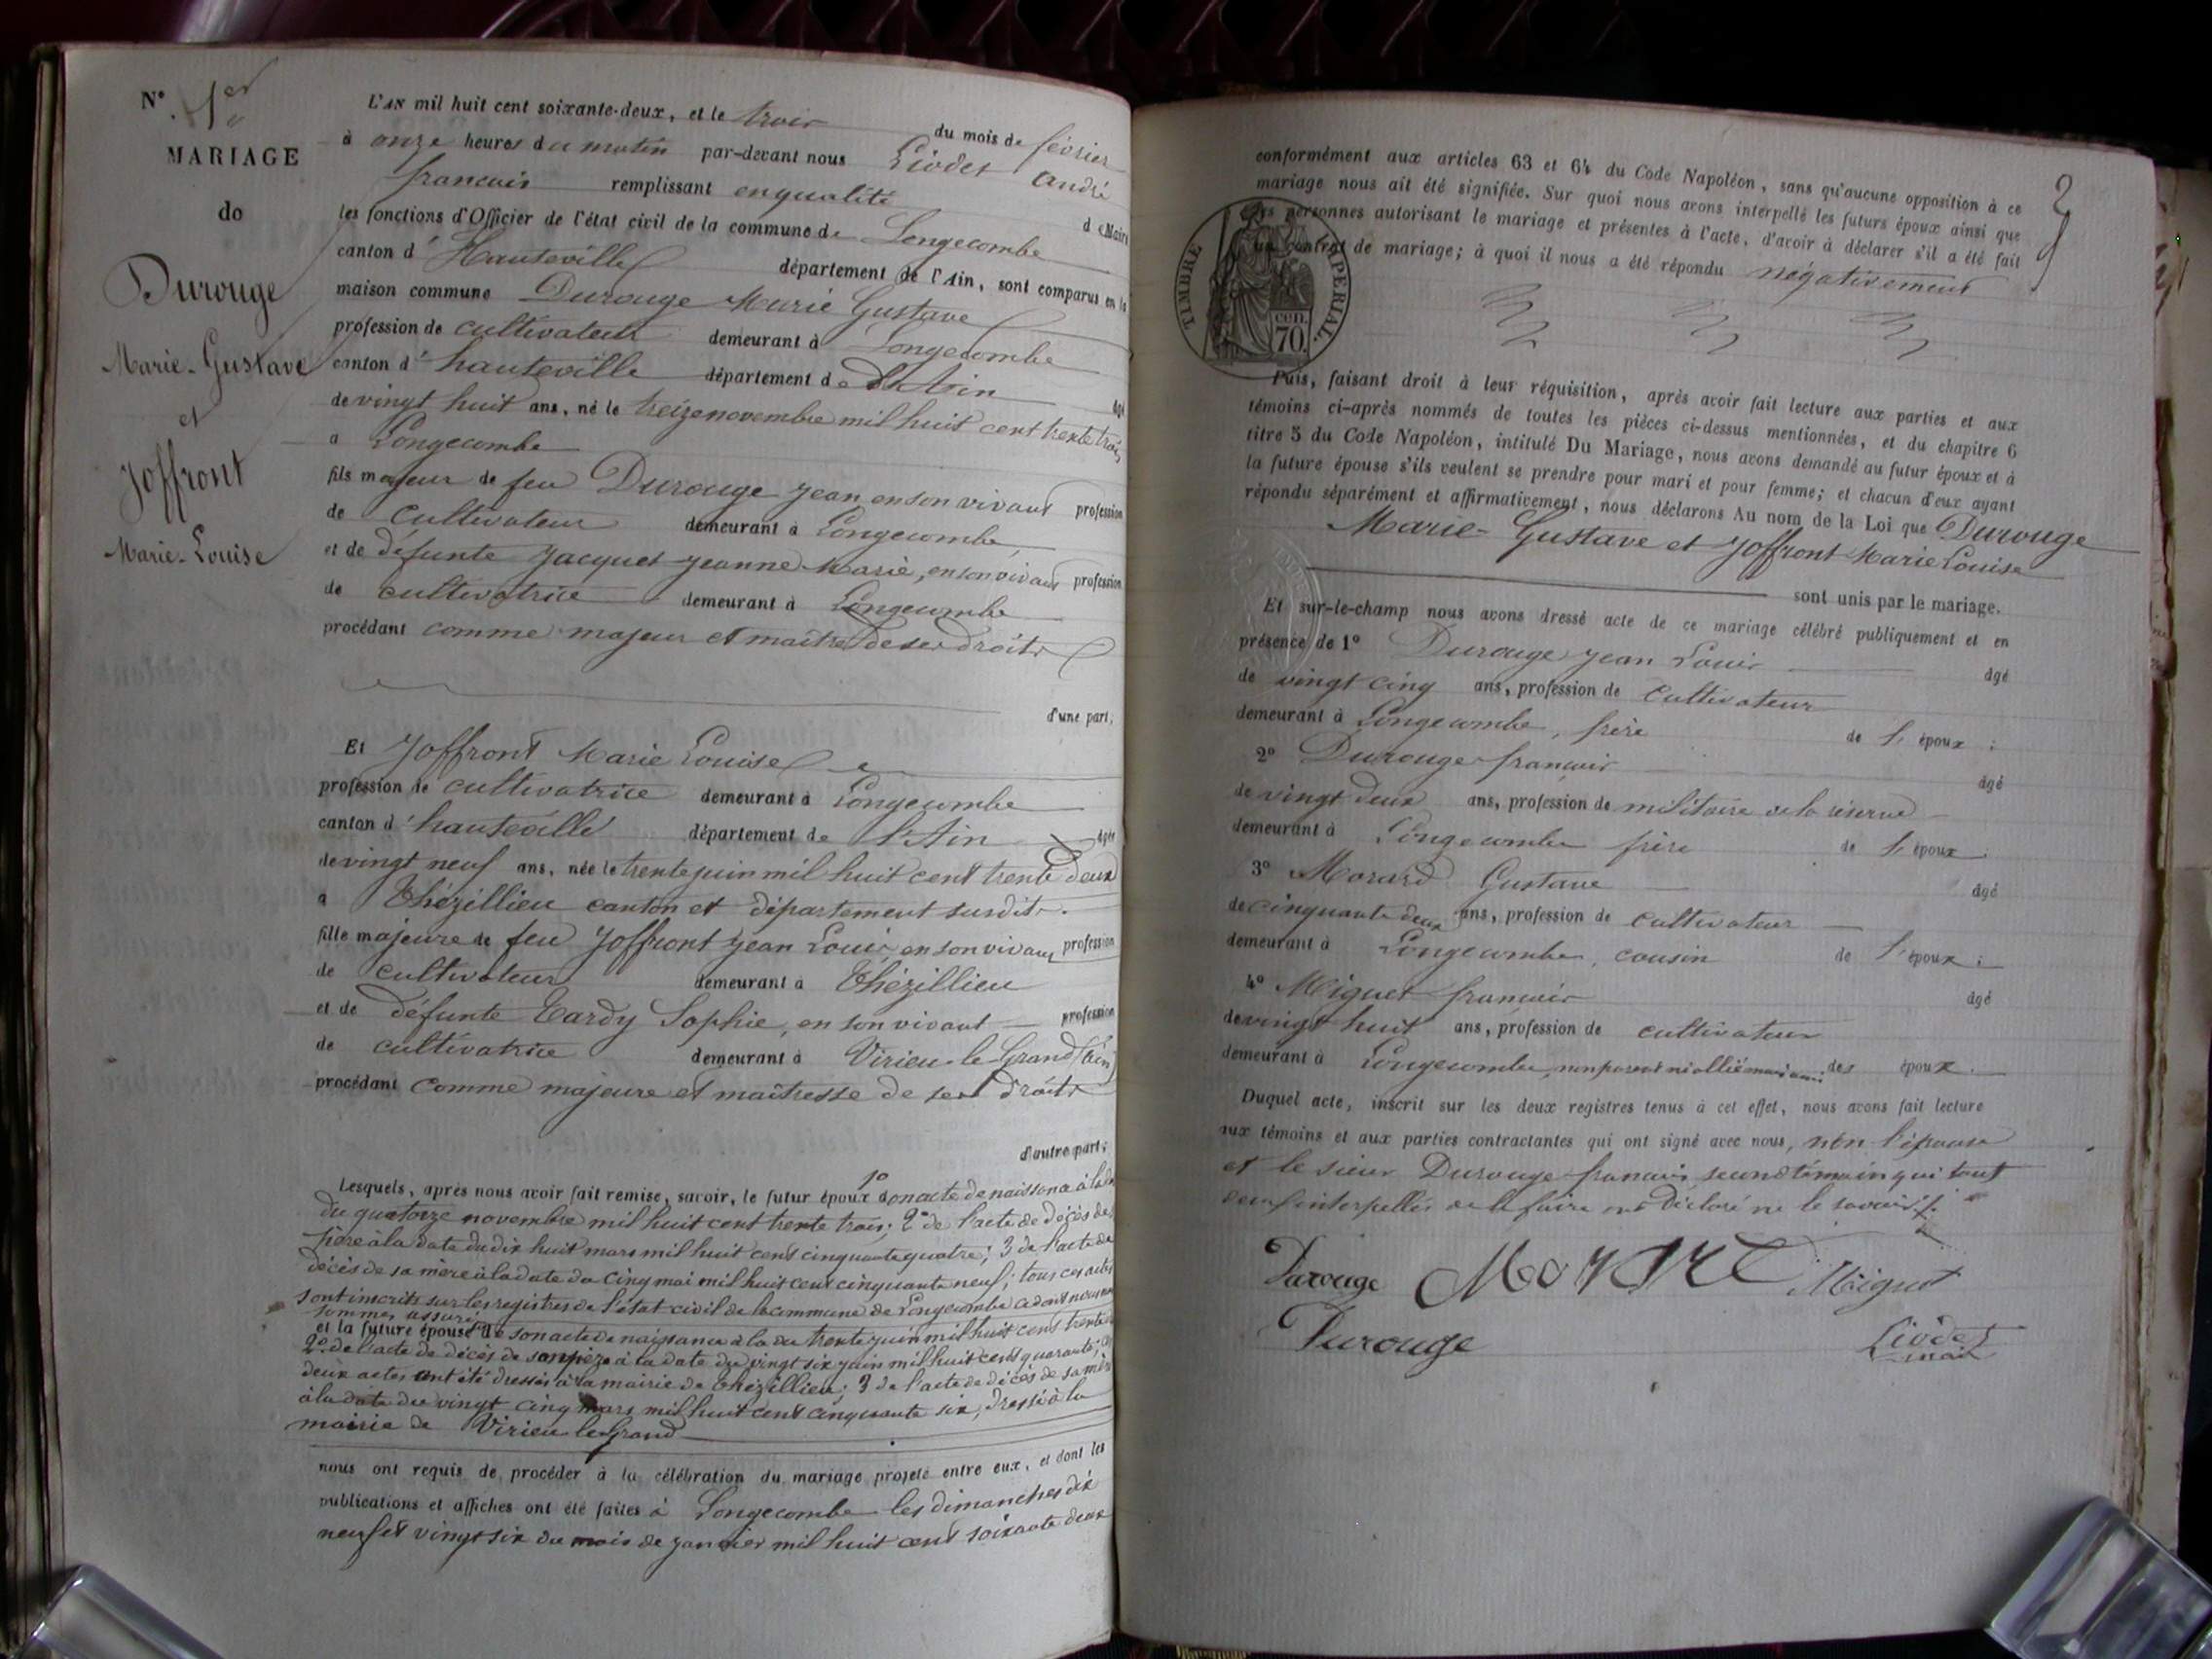 N° 1er
MARIAGE
de
Durouge
Marie-Gustave
et
Joffront
Marie-Louise
L'AN mil huit cent soixante-deux, et le trois du mois de février
à onze heures du matin par-devant nous Liodet André
françois remplissant en qualité de Maire
les fonctions d'Officier de l'état civil de la commune de Longecombe
canton d'Hauteville département de l'Ain, sont comparus en la
maison commune Durouge Marie Gustave
profession de cultivateur demeurant à Longecombe
canton d'hauteville département de l'Ain âgé
de vingt huit ans, né le treize novembre mil huit cent trente trois
a Longecombe
fils majeur de feu Durouge jean en son vivant profession
de cultivateur demeurant à Longecombe
et de défunte Jacquet jeanne Marie, en son vivant profession
de cultivatrice demeurant à Longecombe
procédant comme majeur et maître de ses droits
d'une part;
Et Joffront Marie Louise
profession de cultivatrice demeurant à Longecombe
canton d'hauteville département de l'Ain âgée
de vingt neuf ans, née le trente juin mil huit cent trente deux
a Thézillieu canton et département susdits.
fille majeure de feu Joffront jean Louis, en son vivant profession
de cultivateur demeurant à Thézillieu
et de défunte Tardy Sophie, en son vivant profession
de cultivatrice demeurant à Virieu-le-Grand (Ain)
procédant comme majeure et maîtresse de ses droits
d'autre part;
Lesquels, après nous avoir fait remise, savoir, le futur époux 1° son acte de naissance à la date
du quatorze novembre mil huit cent trente trois; 2° de l'acte de décès de
père à la date du dix huit mars mil huit cent cinquante quatre; 3 de l'acte de
décès de sa mère à la date du cinq mai mil huit cent cinquante neuf; tous ces actes
sont inscrits sur les registres de l'état civil de la commune de Longecombe ce dont nous nous
sommes assuré
et la future épouse de son acte de naissance à la du trente juin mil huit cent trente
2° de l'acte de décès de son père à la date du vingt six juin mil huit cent quarante; ces
deux actes ont été dressés à la mairie de Thézillieu; 3 de l'acte de décès de sa mère
à la date du vingt cinq mars mil huit cent cinquante six, dressé à la
mairie de Virieu le Grand
nous ont requis de procéder à la célébration du mariage projeté entre eux, et dont les
publications et affiches ont été faites à Longecombe les dimanches dix
neuf et vingt six du mois de janvier mil huit cent soixante deux
conformément aux articles 63 et 64 du Code Napoléon, sans qu'aucune opposition à ce
mariage nous ait été signifiée. Sur quoi nous avons interpellé les futurs époux ainsi que
les personnes autorisant le mariage et présentes à l'acte, d'avoir à déclarer s'il a été fait
un contrat de mariage; à quoi il nous a été répondu négativement
TIMBRE IMPÉRIAL
cen.
70.
Puis, faisant droit à leur réquisition, après avoir fait lecture aux parties et aux
témoins ci-après nommés de toutes les pièces ci-dessus mentionnées, et du chapitre 6
titre 5 du Code Napoléon, intitulé Du Mariage, nous avons demandé au futur époux et à
la future épouse s'ils veulent se prendre pour mari et pour femme; et chacun d'eux ayant
répondu séparément et affirmativement, nous déclarons Au nom de la Loi que Durouge
Marie-Gustave et Joffront Marie Louise
sont unis par le mariage.
Et sur-le-champ nous avons dressé acte de ce mariage célébré publiquement et en
présence de 1° Durouge jean Louis âgé
de vingt cinq ans, profession de cultivateur
demeurant à Longecombe, frère de l'époux;
2° Durouge françois âgé
de vingt deux ans, profession de militaire de la réserve
demeurant à Longecombe frère de l'époux
3° Morard Gustave âgé
de cinquante deux ans, profession de cultivateur
demeurant à Longecombe, cousin de l'époux;
4° Miguet françois âgé
de vingt huit ans, profession de cultivateur
demeurant à Longecombe, non parent ni allié mais ami des époux.
Duquel acte, inscrit sur les deux registres tenus à cet effet, nous avons fait lecture
aux témoins et aux parties contractantes qui ont signé avec nous, non l'épouse
et le sieur Durouge françois second témoin qui tout
deux interpellés de le faire ont déclaré ne le savoir
Durouge Morard Miguet
Durouge Liodet
maire